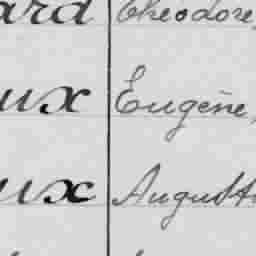 ard Théodore,
ux Eugène,
ux Auguste